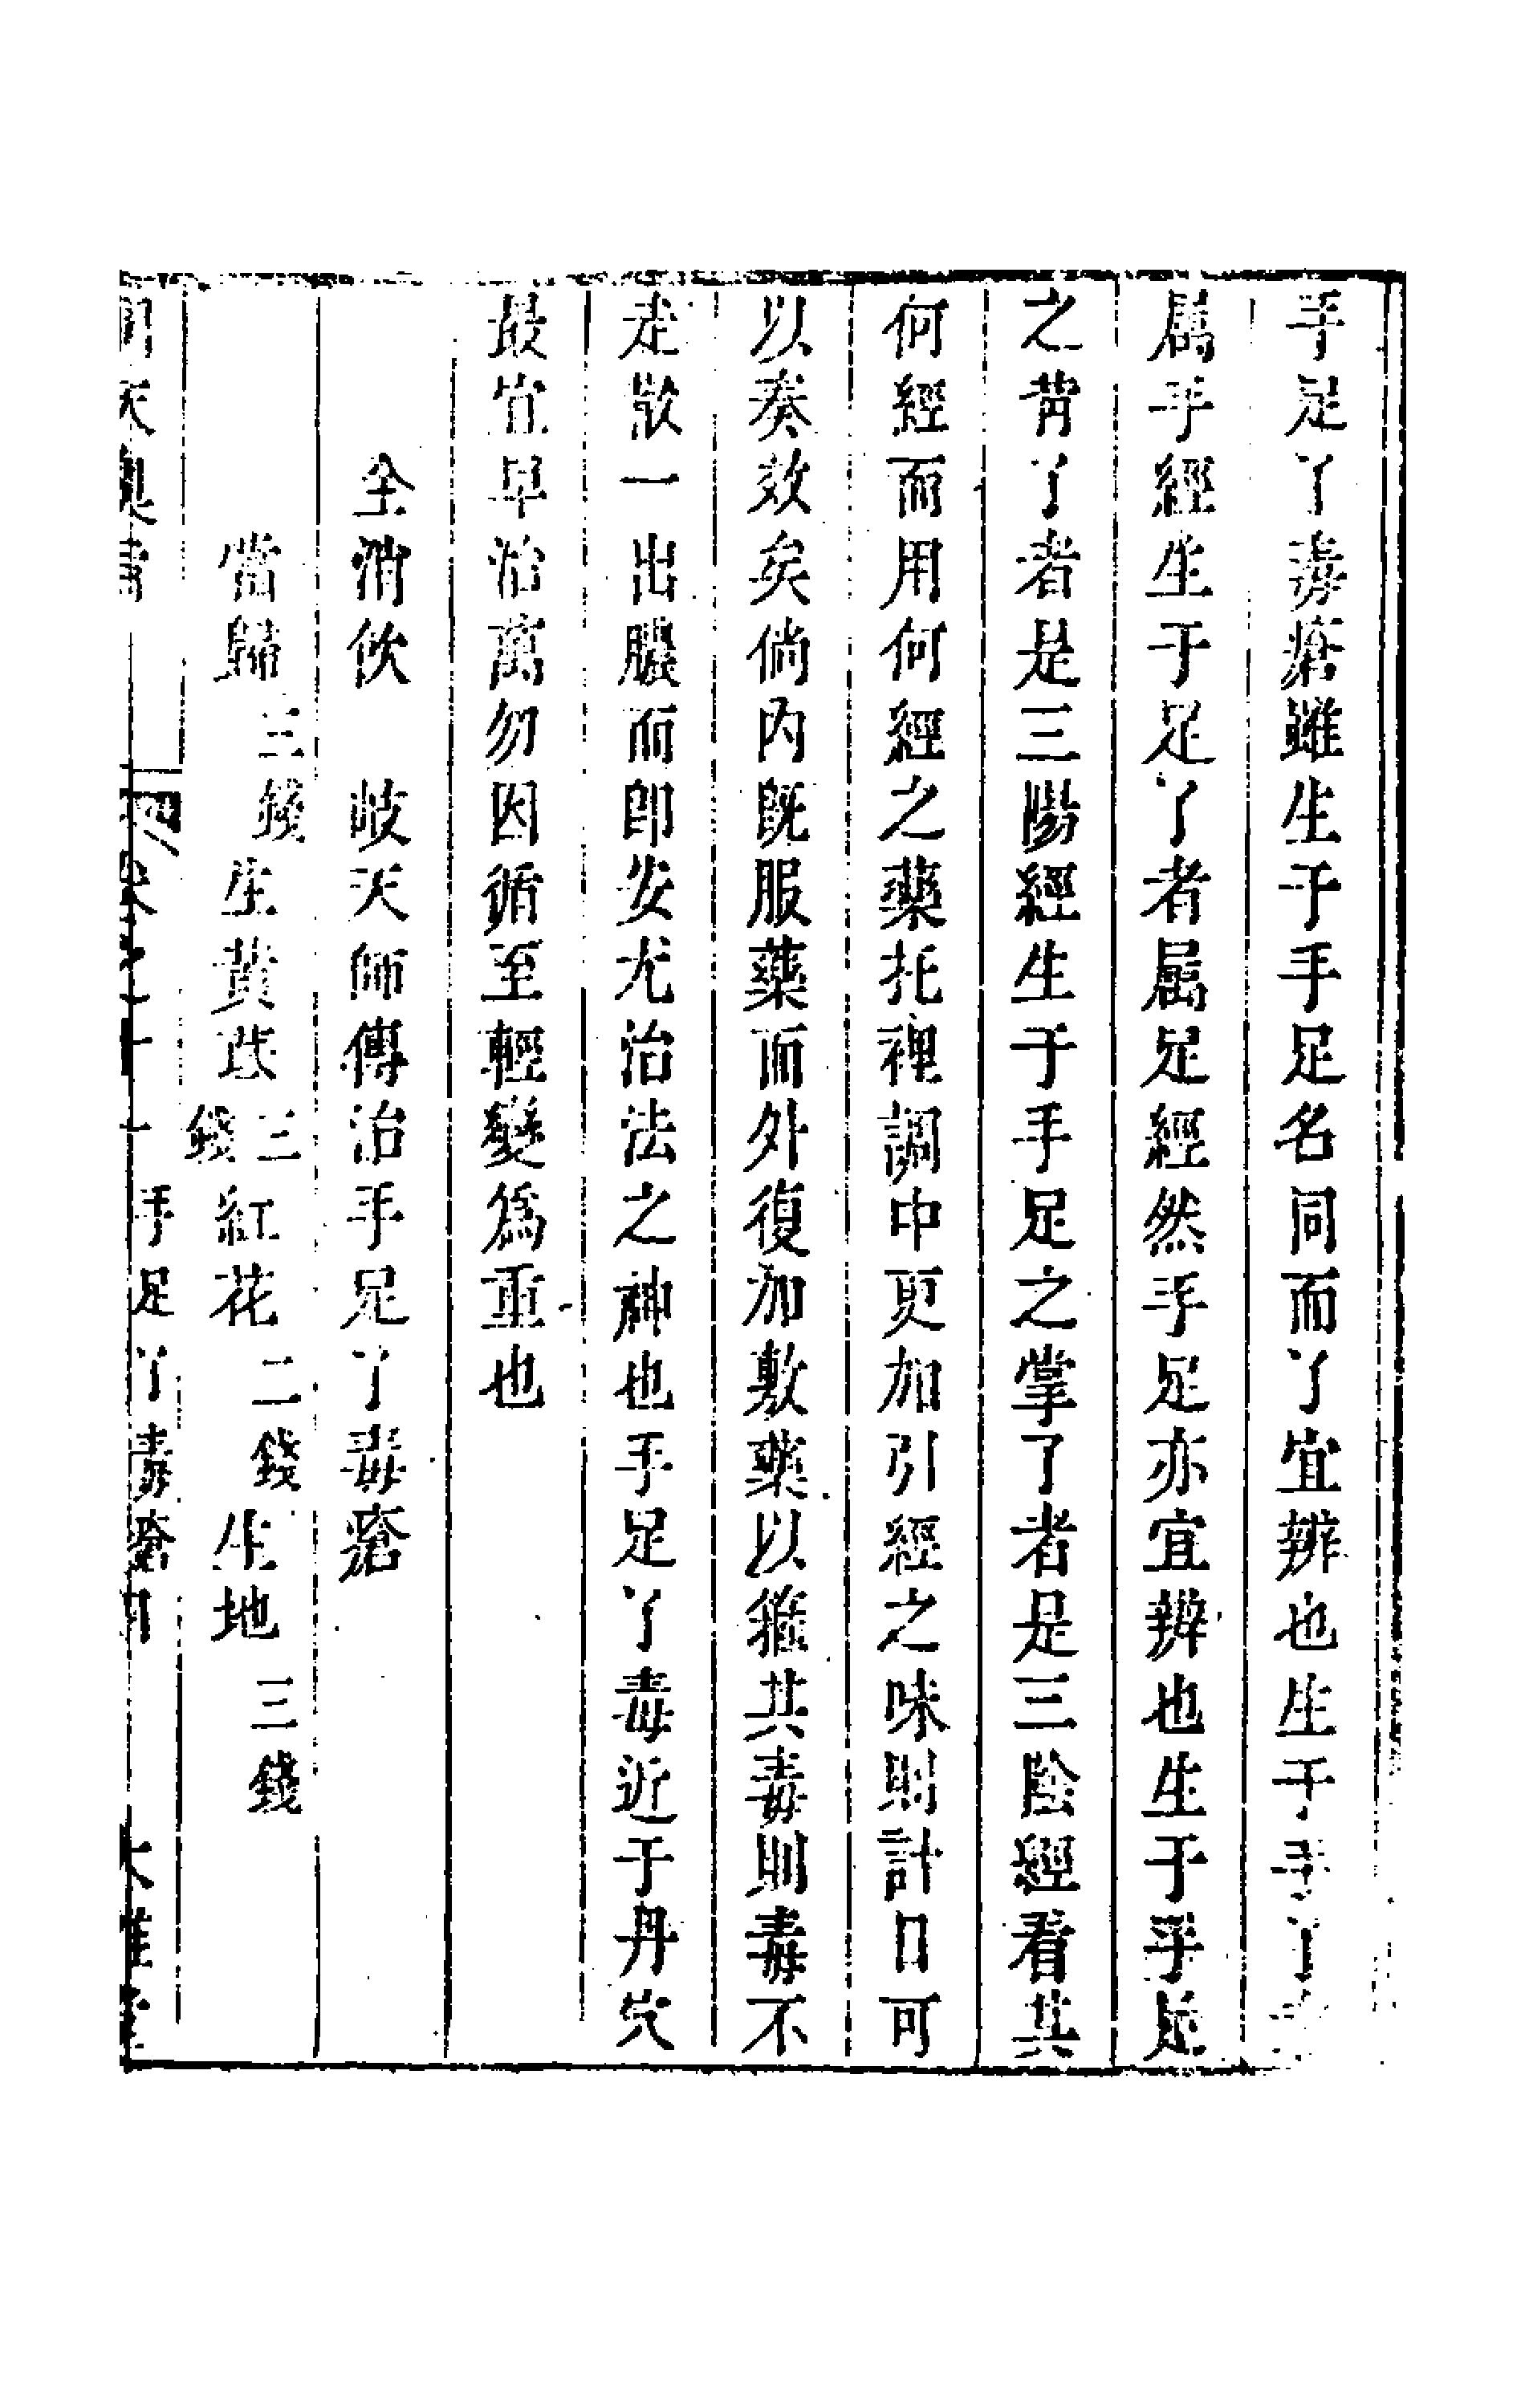 手足丫毒瘡雖生于手足名同而丫宜辨也生于手丫
属手經生于足丫者屬足經然手足亦宜辨也生于手足
之背丫者是三陽經生于手足之掌丫者是三陰經看其
何經而用何經之藥托裡調中更加引經之味則計日可
以奏效矣倘内既服藥而外復加敷藥以箍其毒則毒不
走散一出膿而卽安尤治法之神也手足丫毒近于丹穴
最宜早治萬勿因循至輕變爲重也
全消飲　岐天師傳治手足丫毒瘡
當歸三錢生黄芪三錢紅花二錢生地三錢
洞天奥旨　卷之十一　手足丫毒瘡　大雅堂